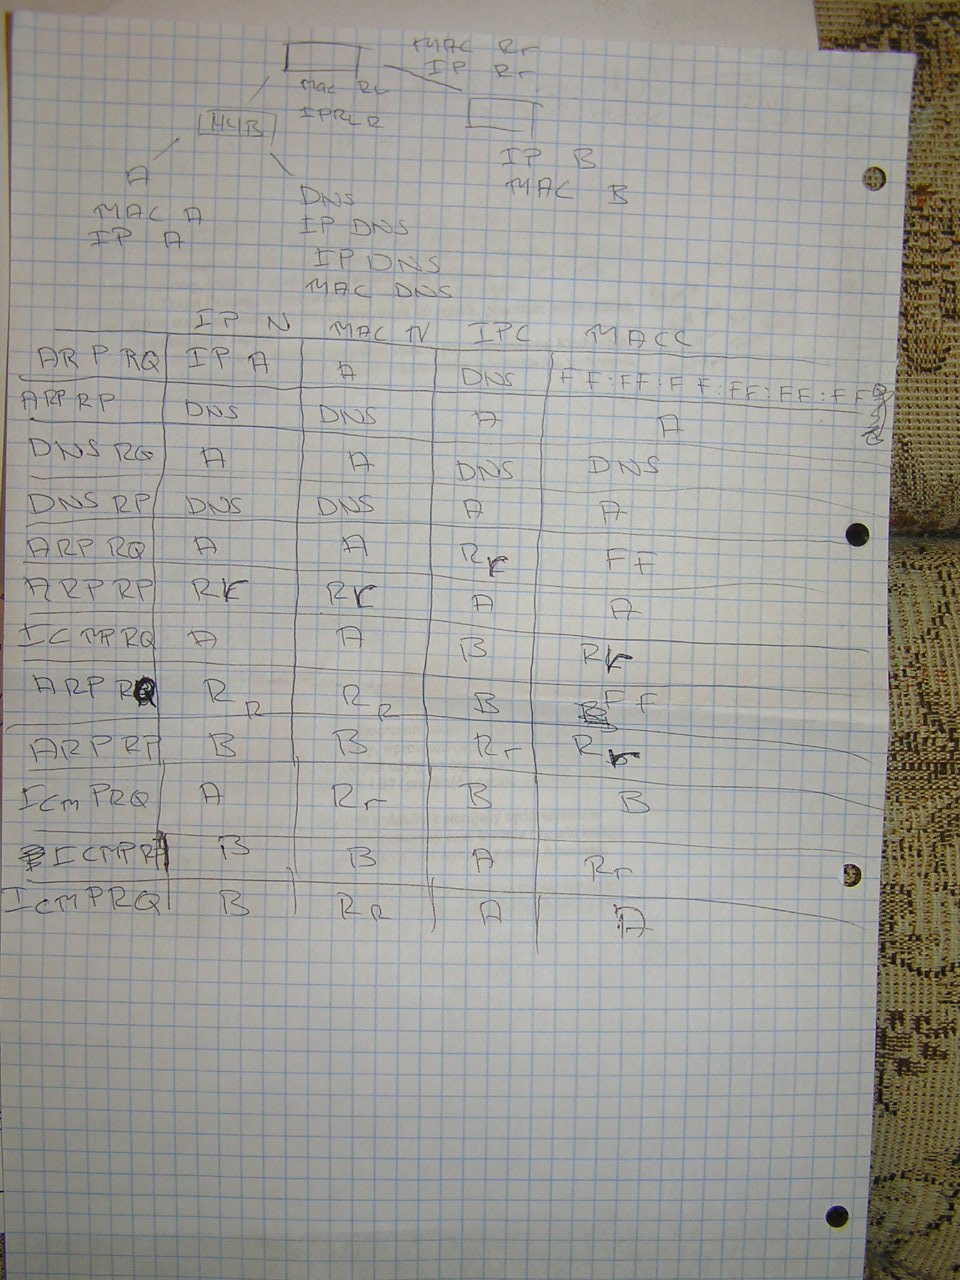 MAC Rr
IP Rr
MAC RL
IPRL R
HUB
IP B
MAC B
A
MAC A
IP A
DNS
IP DNS
IP DNS
MAC DNS
IP N MAC N IPC MACC
ARP RQ IP A A DNS FF:FF:FF:FF:FF:FF
ARP RP DNS DNS A A
DNS RQ A A DNS DNS
DNS RP DNS DNS A A
ARP RQ A A Rr FF
ARP RP Rr Rr A A
ICMPRQ A A B Rr
ARP RQ RR RR B FF
ARP RP B B Rr Rr
ICMPRQ A Rr B B
ICMPRP B B A Rr
ICMPRQ B RR A A